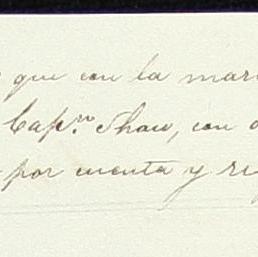 que con la mar
Cap.ⁿ Shaw, con
por cuenta y